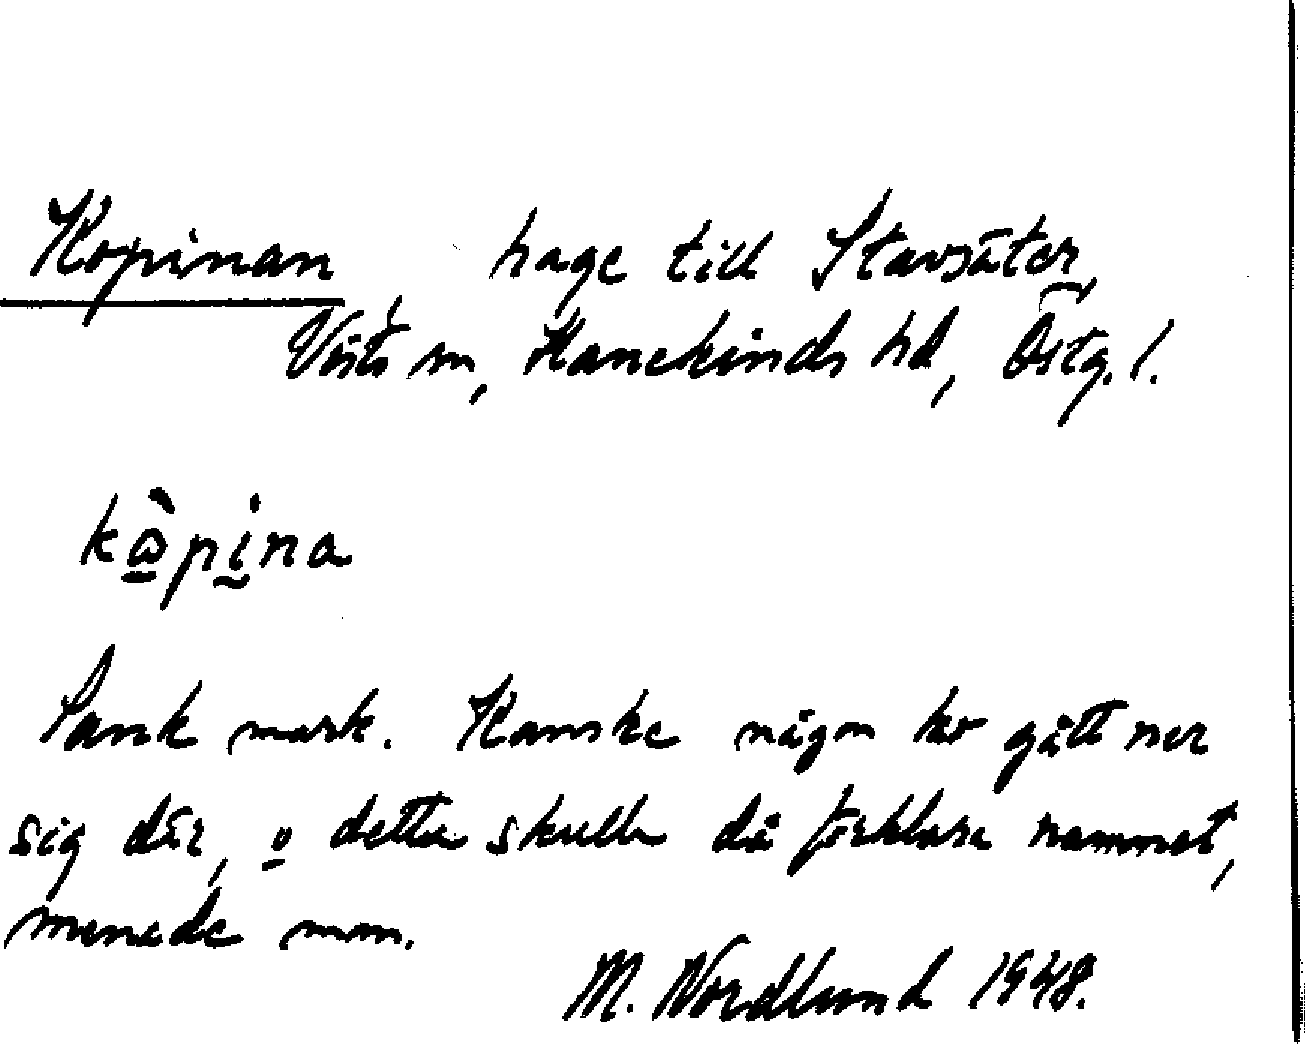 Kopinan, hage till Stavsäter,
Vists sn, Hanekinds hd, Östg. l.
kò̱pḭna
Sank mark. Kanske någon ko gått ner
sig där, o detta skulle då förklara namnet,
menade man.
M. Nordlund 1948.